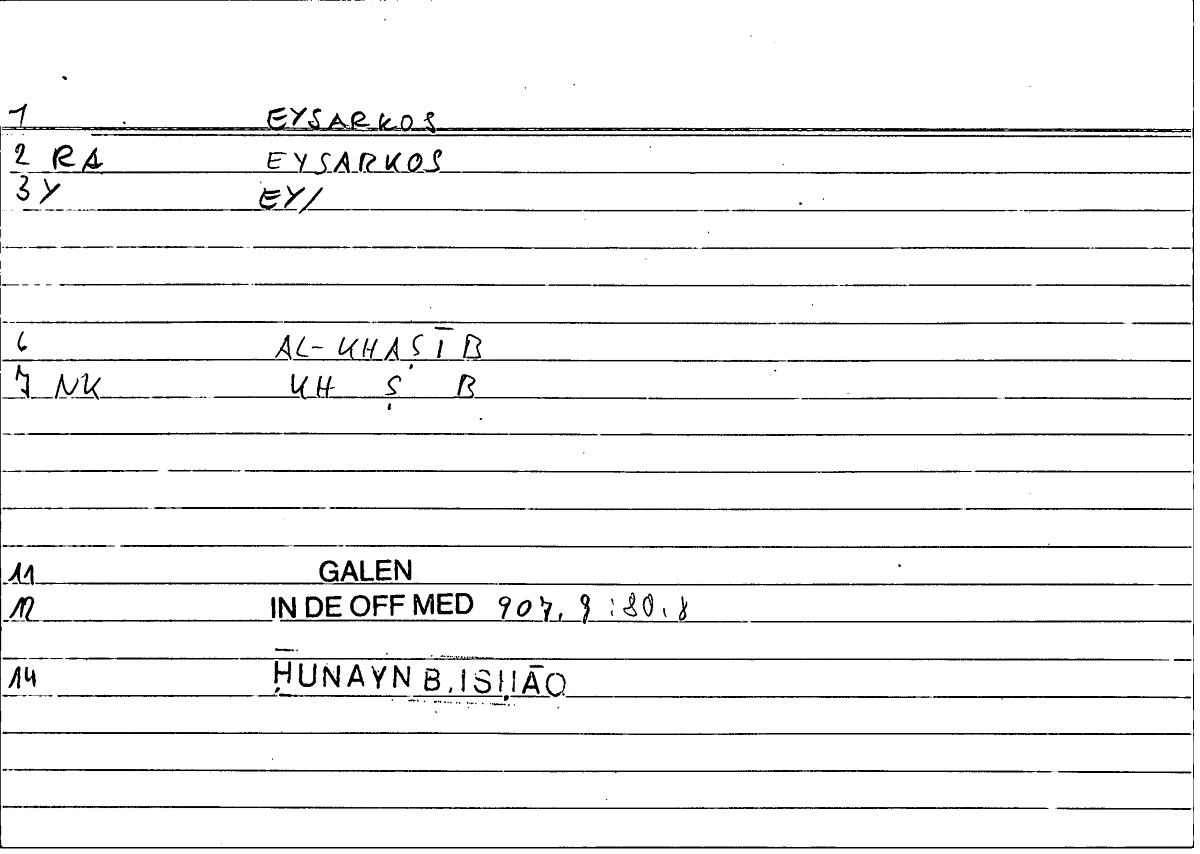 1 EYSARKOS
2 RA EYSARKOS
3 Y EY/
6 AL-KHAṢĪB
7 NK KH Ṣ B
11 GALEN
12 IN DE OFF MED 907, 9 : 80, 8
14 ḤUNAYN B. ISḤĀQ